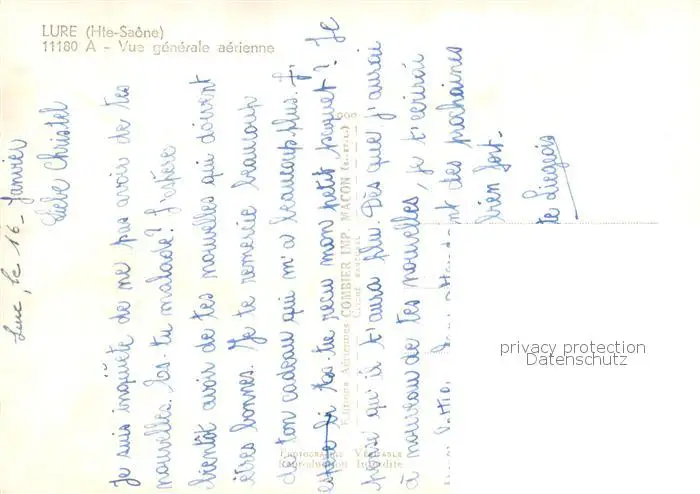 LURE (Hte-Saône)
11180 A - Vue générale aérienne
Lure, le 16 - Janvier
Liebe Christel
Je suis inquiète de ne pas avoir de tes
nouvelles. Es-tu malade? J'espère
bientôt avoir de tes nouvelles qui doivent
êtres bonnes. Je te remercie beaucoup
de ton cadeau qui m'a beaucoup plus. J'
As-tu reçu mon petit paquet? Je
pense qu'il t'aura plu. Dès que j'aurai
à nouveau de tes nouvelles, je t'écrirai
des prochaines
bien fort-
te Liegeois
Editions Aériennes COMBIER IMP. MACON (S.-et-L.)
PHOTOGRAPHIE VÉRITABLE
Reproduction Interdite
privacy protection
Datenschutz